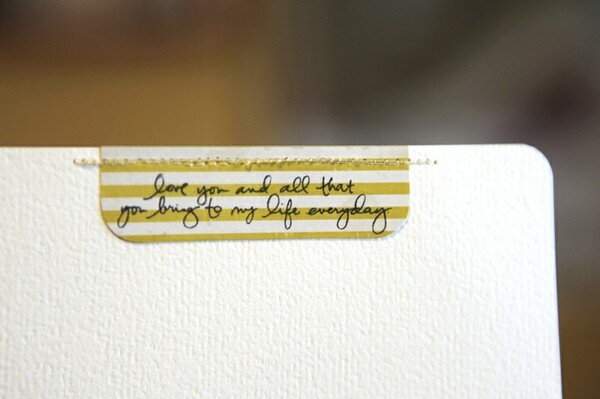 love you and all that
you bring to my life everyday